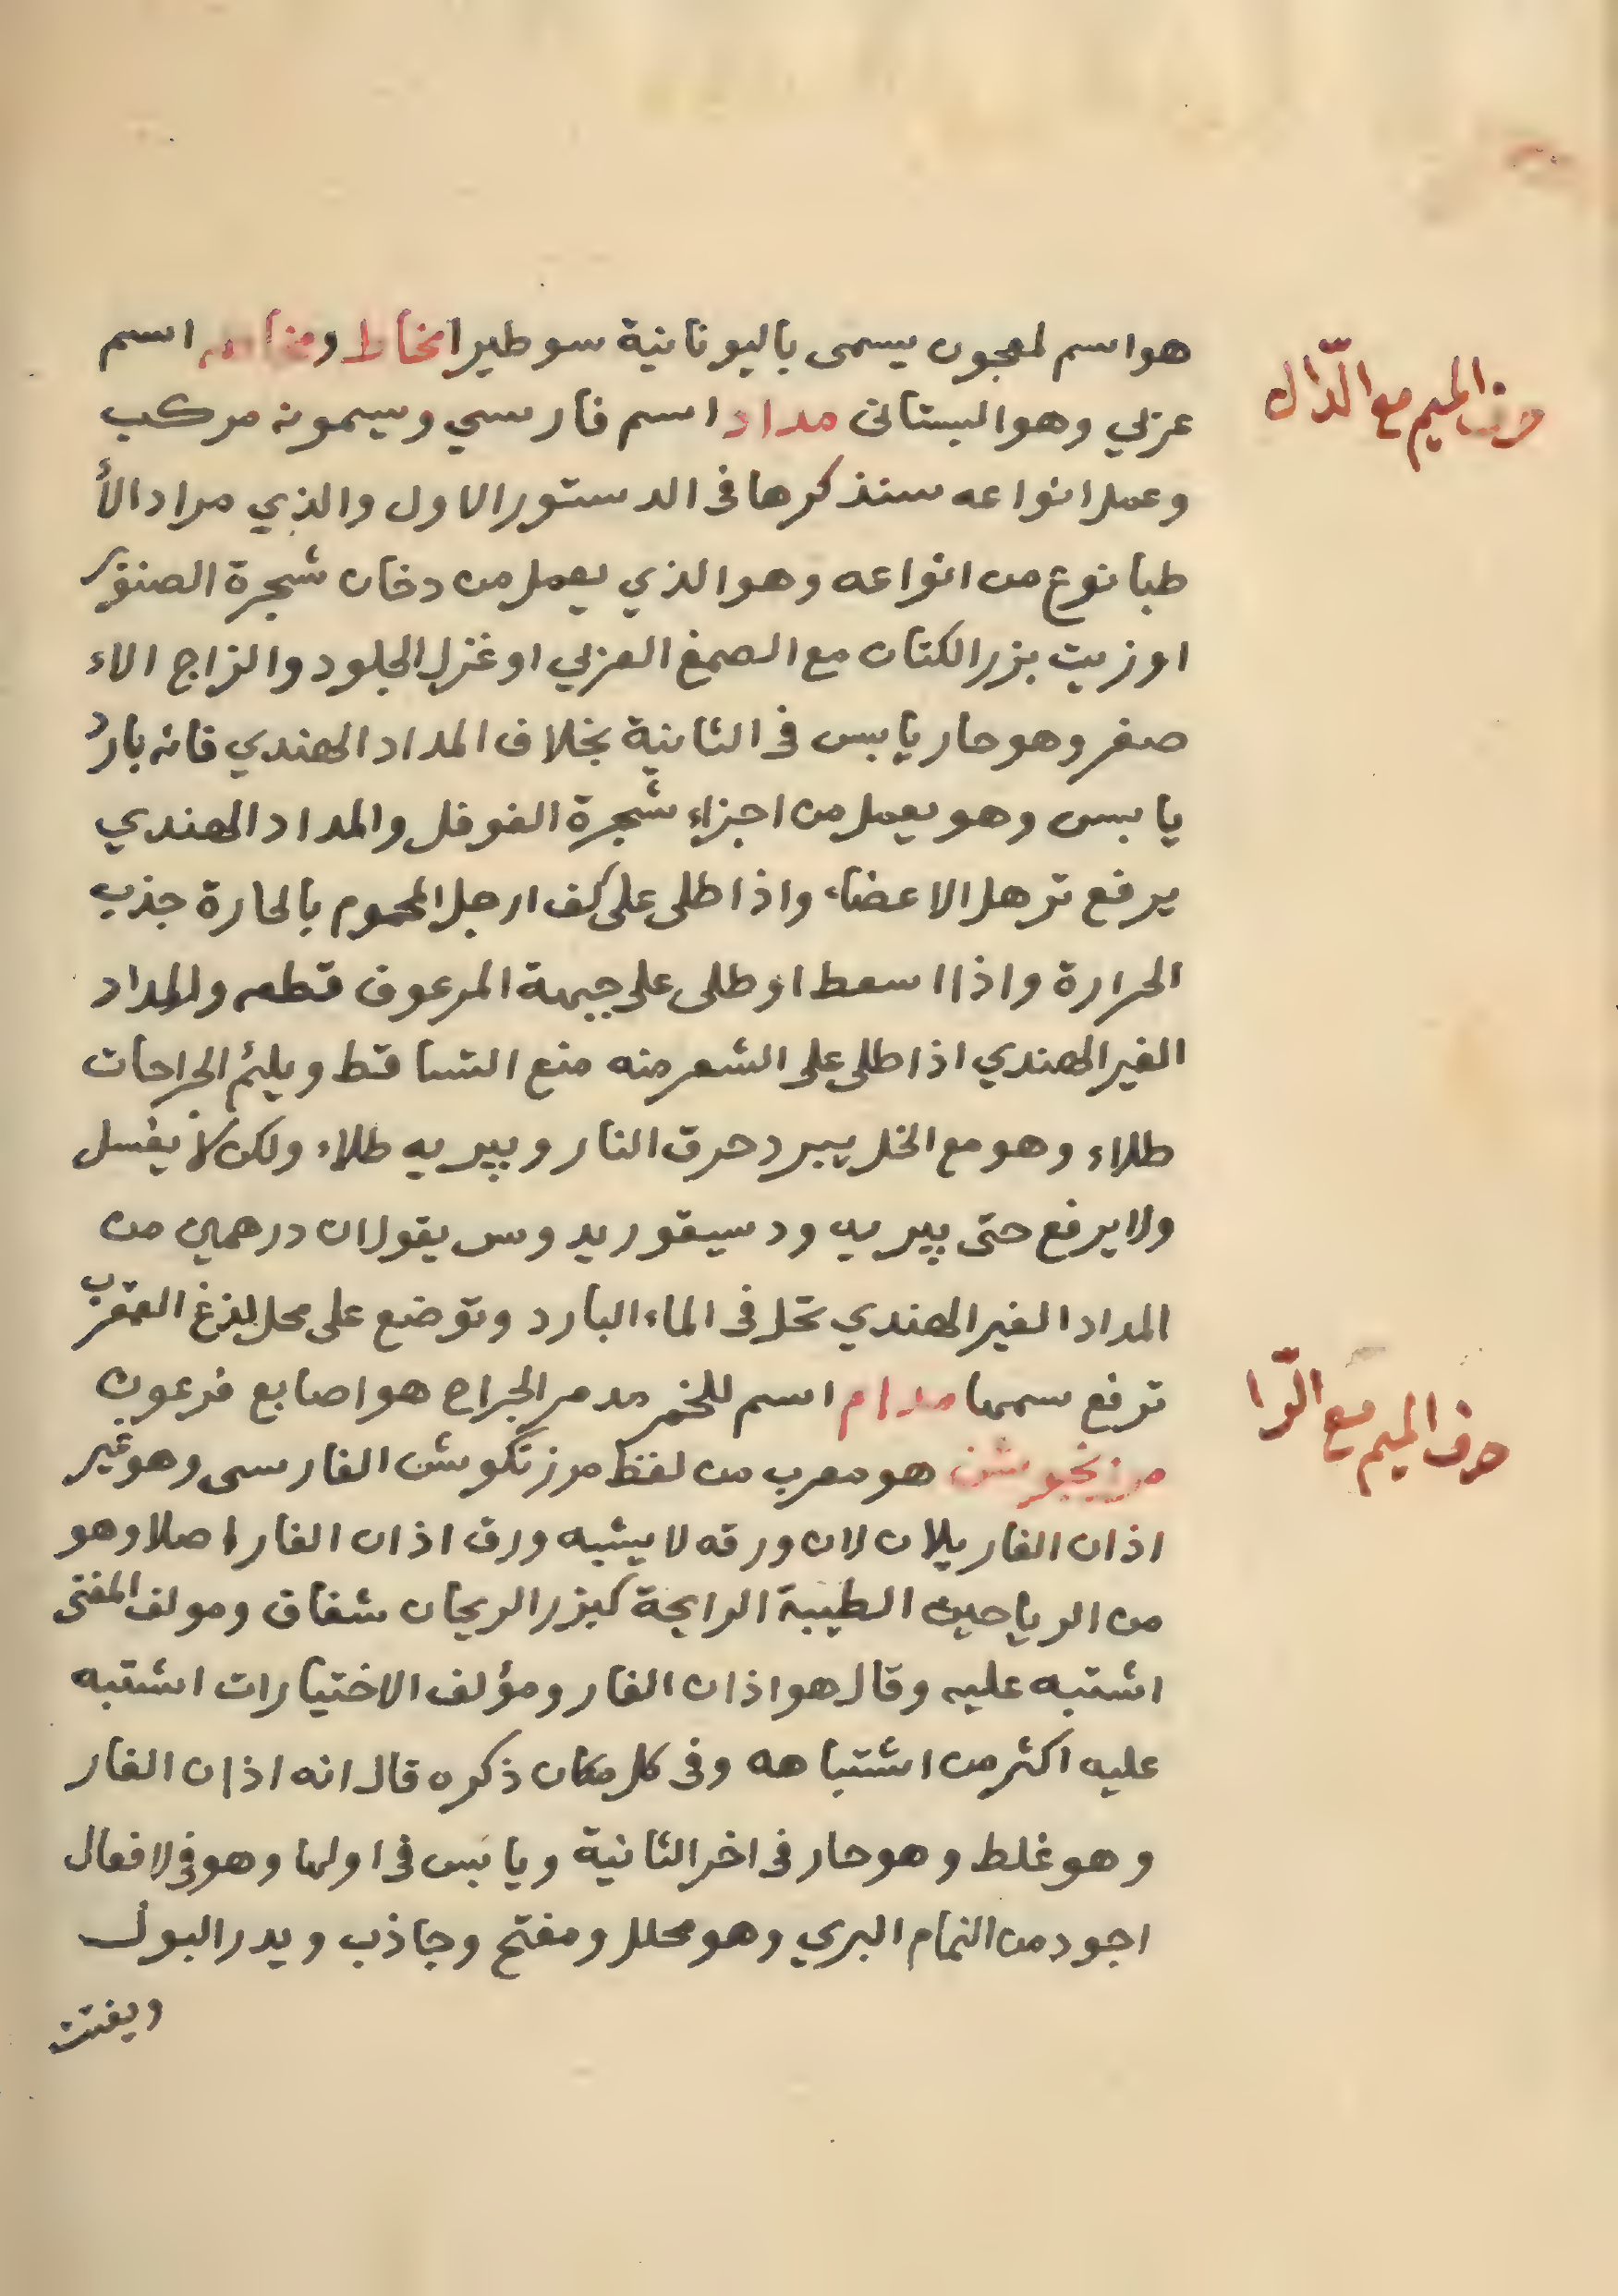 هو اسم لمعجون يسمى باليونانية سوطيرا مخاط و اسم
حرف الميم مع الدّال
عربي وهو البستانى مداد اسم فارسي ويسمونه مركب
وعمل انواعه سنذكرها فى الدستور الاول والذي مراد الأ
طبا نوع من انواعه وهو الذي يعمل من دخان شجرة الصنوبر
او زيت بزر الكتان مع الصمغ العربي او غزل الجلود والزاج الاء
صفر وهو حار يابس فى الثانية بخلاف المداد الهندي فانه بارد
يابس وهو يعمل من اجزاء شجرة الفوفل والمداد الهندي
يرفع ترهل الاعضاء واذا طلى على كف ارجل المحموم بالحارة جذب
الحرارة واذا اسعط او طلى على جبهة المرعوف قطعه والمداد
الغير الهندي اذا طلى على الشعر منه منع التساقط ويلئم الجراحات
طلاء وهو مع الخل يبرد حرق النار ويبريه طلاء ولكن لا يغسل
ولا يرفع حتى يبريه ودسيقوريدوس يقول ان درهمين من
المداد الغير الهندي تحل فى الماء البارد وتوضع على محل لذغ العقرب
ترفع سمها مدام اسم للخمر مدمر الجراح هو اصابع فرعون
حرف الميم مع الرّا
مرزنجوشن هو معرب من لفظ مرزنكوشن الفارسى وهو غير
اذان الفار يلان لان ورقه لا يشبه ورق اذان الفار اصلا وهو
من الرياحين الطيبة الرايحة كبزر الريحان شفاق ومولف المغنى
اشتبه عليه وقال هو اذان الفار ومؤلف الاختيارات اشتبه
عليه اكثر من اشتباهه وفى كل مكان ذكره قال انه اذان الفار
وهو غلط وهو حار فى اخر الثانية ويابس فى اولها وهو فى لافعال
اجود من النمام البري وهو محلل ومفتح وجاذب ويدر البول
ويفتت